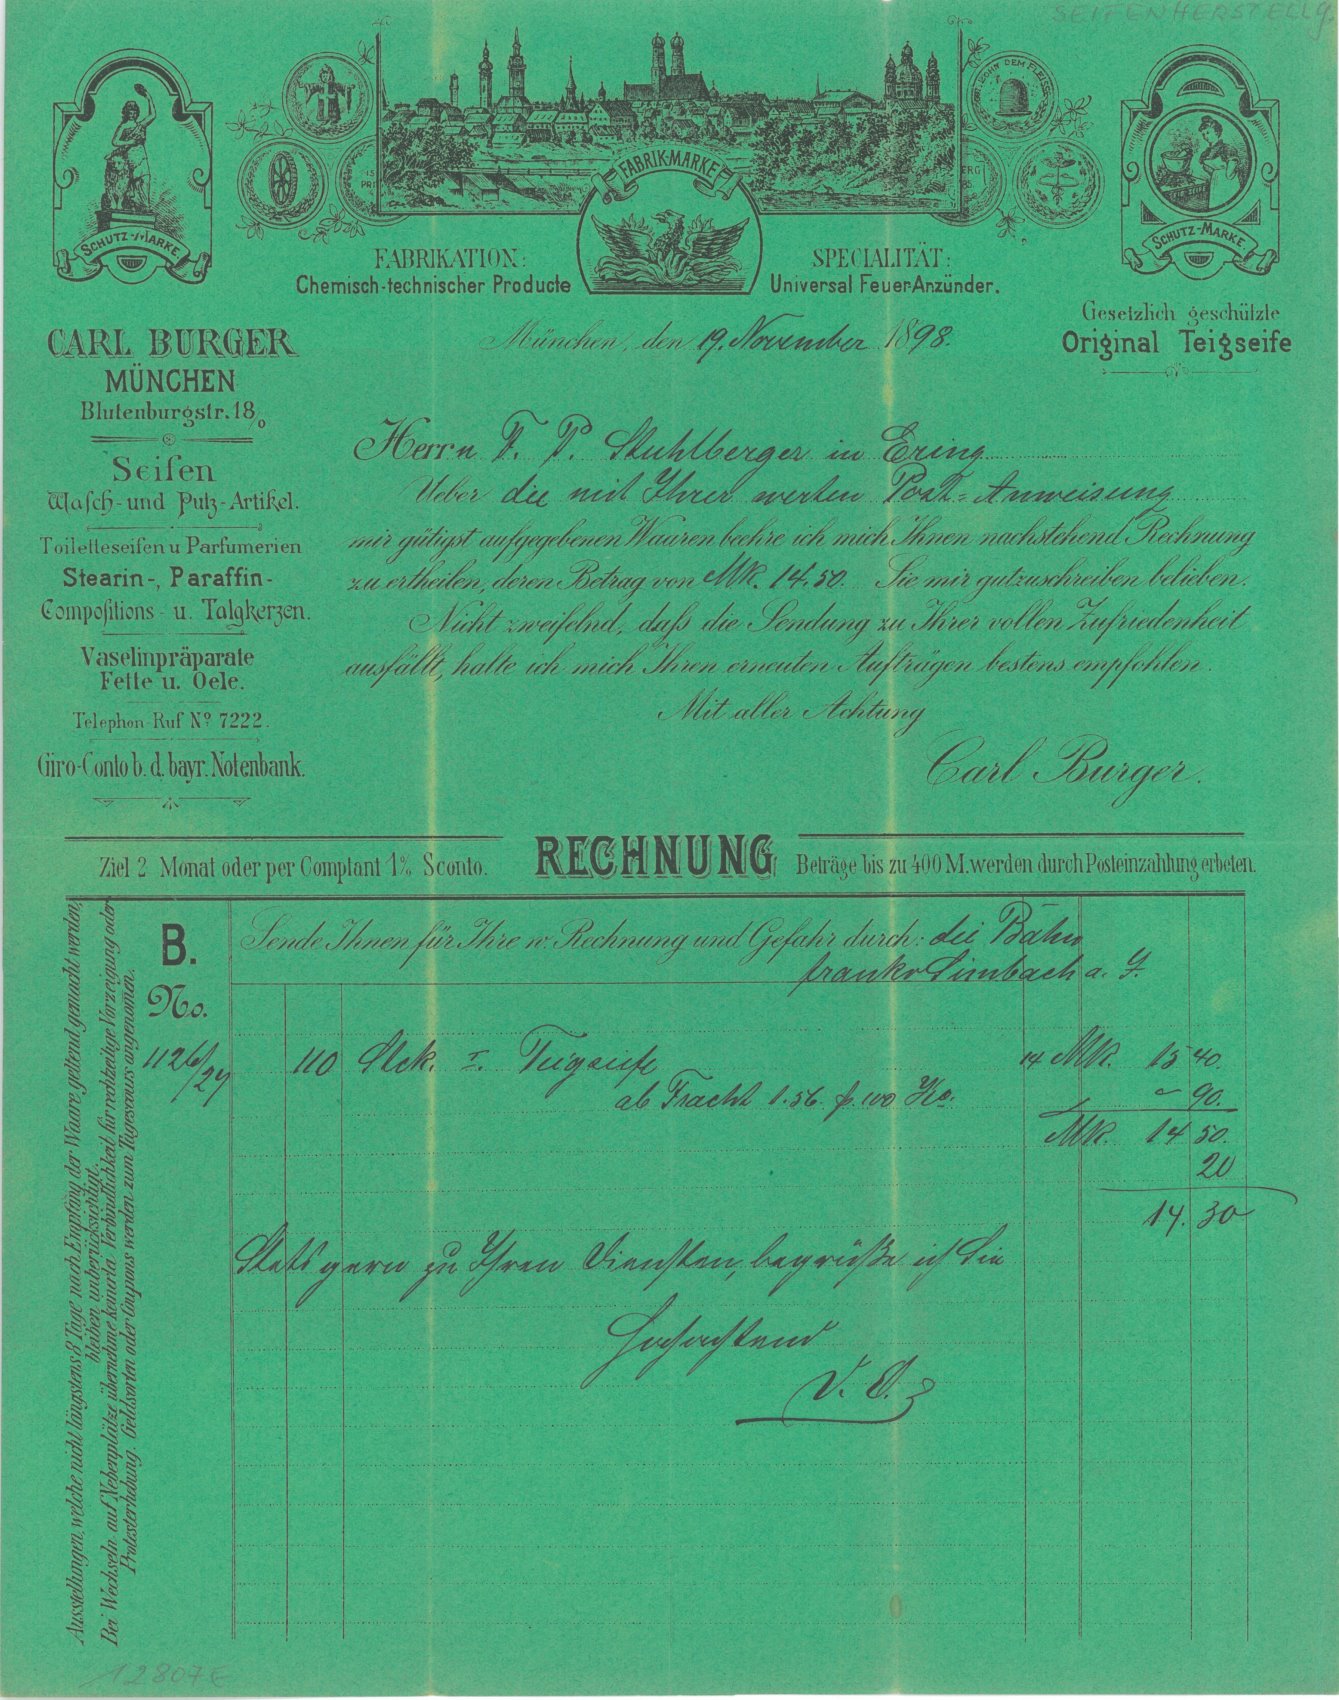 SEIFENHERSTELLG.
LOHN DEM FLEISSE
FABRIK-MARKE
SCHUTZ-MARKE
SCHUTZ-MARKE.
FABRIKATION:
Chemisch-technischer Producte
SPECIALITÄT:
Universal Feuer-Anzünder.
Gesetzlich geschützte
Original Teigseife
CARL BURGER
MÜNCHEN
Blutenburgstr. 18/0
Seifen
Wasch- und Putz-Artikel.
Toiletteseifen u Parfumerien
Stearin-, Paraffin-
Compositions- u. Talgkerzen.
Vaselinpräparate
Fette u. Oele.
Telephon Ruf No 7222.
Giro-Conto b. d. bayr. Notenbank.
München, den 19. November 1898.
Herrn F. P. Stuhlberger in Ering
Ueber die mit Ihrer werten Post-Anweisung
mir gütigst aufgegebenen Waaren beehre ich mich Ihnen nachstehend Rechnung
zu ertheilen, deren Betrag von Mk. 14.50. Sie mir gutzuschreiben belieben.
Nicht zweifelnd, daß die Sendung zu Ihrer vollen Zufriedenheit
ausfällt, halte ich mich Ihren erneuten Aufträgen bestens empfohlen.
Mit aller Achtung
Carl Burger.
Ziel 2 Monat oder per Comptant 1% Sconto.
RECHNUNG
Beträge bis zu 400 M. werden durch Posteinzahlung erbeten.
Ausstellungen, welche nicht längstens 8 Tage nach Empfang der Waare geltend gemacht werden,
bleiben unberücksichtigt.
Bei Wechseln auf Nebenplätze übernehme keinerlei Verbindlichkeit für rechtzeitige Vorzeigung oder
Protesterhebung. Geldsorten oder Coupons werden zum Tagescours angenommen.
B.
No.
Sende Ihnen für Ihre w. Rechnung und Gefahr durch: die Bahn
franko Simbach a. I.
1126/27 110 Stck. I. Teigseife 14 Mk. 15 40.
ab Fracht 1.56. p. 100 Ko. - 90.
Mk. 14 50.
20
14.30
Stets gern zu Ihren Diensten, begrüße ich Sie
Hochachtend
D. O.
12807E